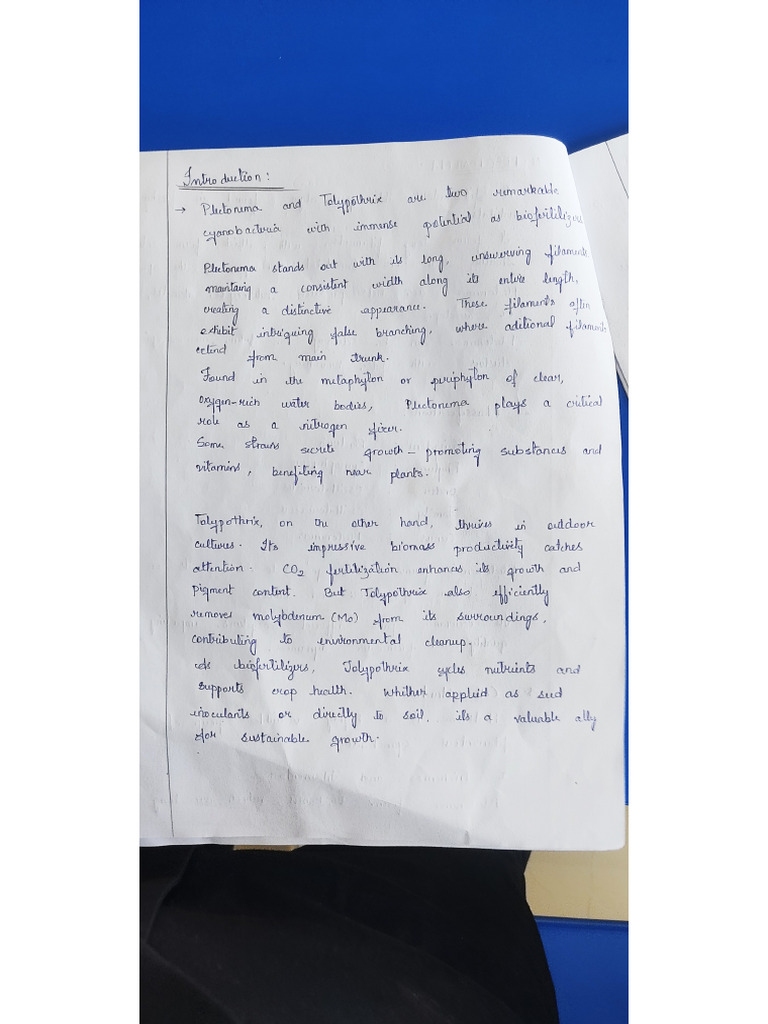 Introduction:
→ Plectonema and Tolypothrix are two remarkable
cyanobacteria with immense potential as biofertilizers
Plectonema stands out with its long, unswerving filaments
maintaing a consistent width along its entire length,
creating a distinctive appearance. These filaments often
exhibit intriguing false branching, where aditional filaments
extend from main trunk.
Found in the metaphyton or periphyton of clear,
oxygen-rich water bodies, Plectonema plays a critical
role as a nitrogen fixer.
Some strains secrete growth-promoting substances and
vitamins, benefiting near plants.
Tolypothrix, on the other hand, thrives in outdoor
cultures. Its impressive biomass productively catches
attention. CO2 fertilization enhances its growth and
pigment content. But Tolypothrix also efficiently
removes molybdenum (Mo) from its surroundings,
contributing to environmental cleanup.
As biofertilizers, Tolypothrix cycles nutrients and
supports crop health. Whether applied as seed
inoculants or directly to soil, its a valuable ally
for sustainable growth.